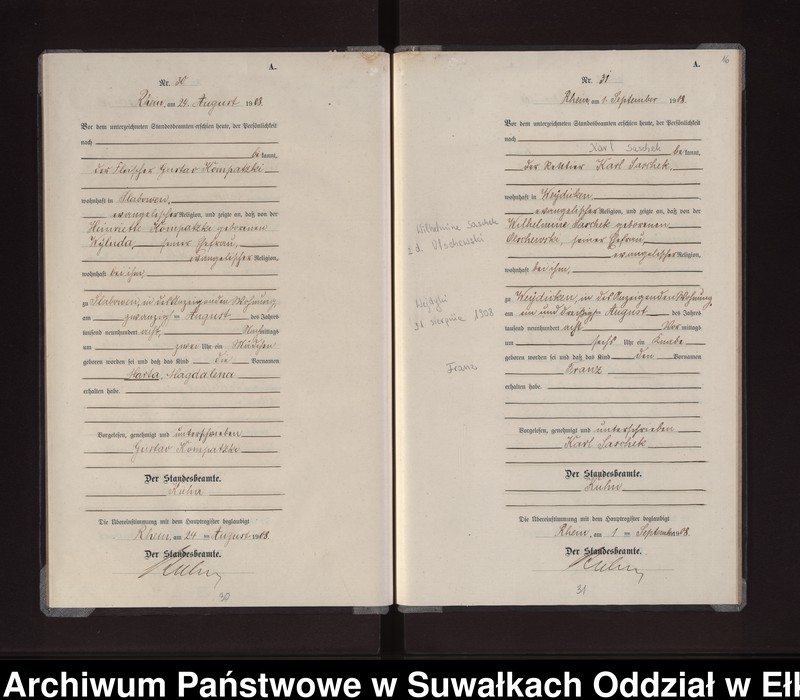 A.
Nr. 30
Rhein, am 24. August 1908.
Vor dem unterzeichneten Standesbeamten erschien heute, der Persönlichkeit
nach
be kannt,
der Fleischer Gustav Kompatzki
wohnhaft in Slabowen,
evangelischer Religion, und zeigte an, daß von der
Henriette Kompatzki geborenen
seiner Ehefrau,
evangelischer Religion,
wohnhaft bei ihm,
zu Slabowen, in des Anzeigenden Wohnung
am zwanzig ten August des Jahres
tausend neunhundert acht, Nachmittags
um zwei Uhr ein Mädchen
geboren worden sei und daß das Kind die Vornamen
Marta, Magdalena
erhalten habe.
Vorgelesen, genehmigt und unterschrieben
Gustav Kompatzki
Der Standesbeamte.
Kuhn
Die Übereinstimmung mit dem Hauptregister beglaubigt
Rhein, am 24 ten August 1908.
Der Standesbeamte.
Kuhn
30
16
A.
Nr. 31
Rhein, am 1. September 1908.
Vor dem unterzeichneten Standesbeamten erschien heute, der Persönlichkeit
nach
Karl Saschek be kannt,
der Rentner Karl Saschek,
wohnhaft in Weydicken,
evangelischer Religion, und zeigte an, daß von der
Wilhelmine Saschek geborenen
Olschewski, seiner Ehefrau
evangelischer Religion,
wohnhaft bei ihm,
zu Weydicken, in des Anzeigenden Wohnung,
am ein und dreißigsten August des Jahres
tausend neunhundert acht Vor mittags
um sechs Uhr ein Knabe
geboren worden sei und daß das Kind den Vornamen
Franz
erhalten habe.
Vorgelesen, genehmigt und unterschrieben
Karl Saschek
Der Standesbeamte.
Kuhn
Die Übereinstimmung mit dem Hauptregister beglaubigt
Rhein, am 1 ten September 1908.
Der Standesbeamte.
Kuhn
31
Wilhelmine Saschek
z d. Olschewski
Wejdyki
31 sierpnia 1908
Franz
Archiwum Państwowe w Suwałkach Oddział w Eł